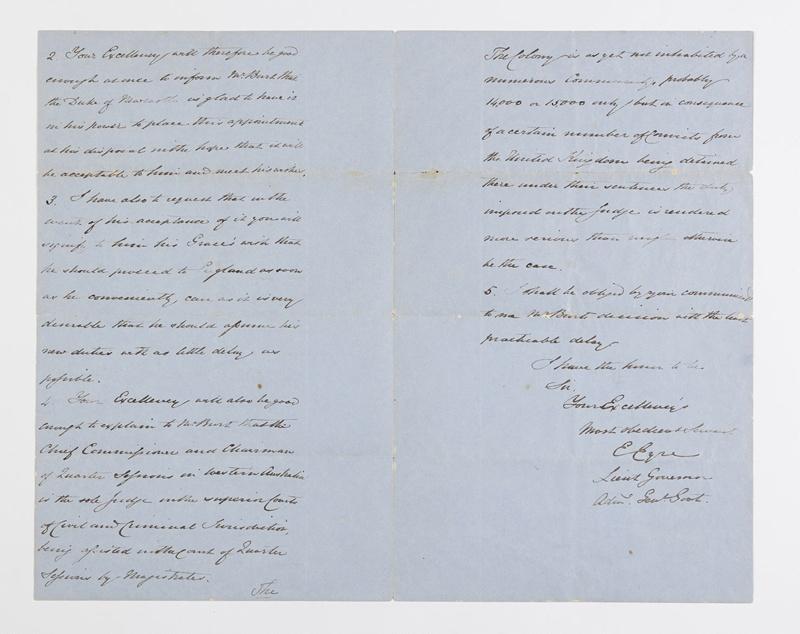 2 Your Excellency will therefore be good
enough at once to inform Mr. Burt that
the Duke of Newcastle is glad to have it
in his power to place this appointment
at his disposal in the hope that it will
be acceptable to him and meet his wishes.
3. I have also to request that in the
event of his acceptance of it you will
signify to him his Grace's wish that
he should proceed to England as soon
as he conveniently can as it is very
desirable that he should assume his
new duties with as little delay as
possible.
4. Your Excellency will also be good
enough to explain to Mr Burt that the
Chief Commissioner and Chairman
of Quarter Sessions in Western Australia
is the sole Judge in the superior Courts
of Civil and Criminal Jurisdiction,
being assisted in the Court of Quarter
Sessions by Magistrates.
The
The Colony is as yet not inhabited by a
numerous Community, probably
14000 or 15000 only, but in consequence
of a certain number of Convicts from
the United Kingdom being detained
there under their sentences the duty
imposed on the Judge is rendered
more serious than might otherwise
be the case.
5. I shall be obliged by your communicating
to me Mr Burt's decision with the least
practicable delay
I have the honor to be
Sir
Your Excellency's
Most obedient Servant
E Eyre
Lieut Governor
Adm. Govt.